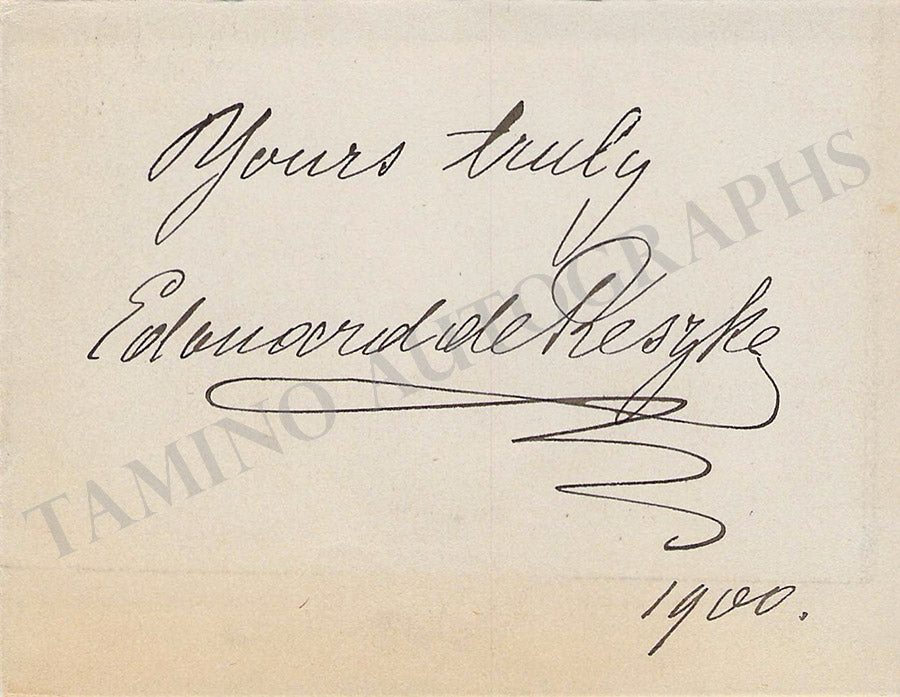 Yours truly
Edouard de Reszke
1900.
TAMINO AUTOGRAPHS